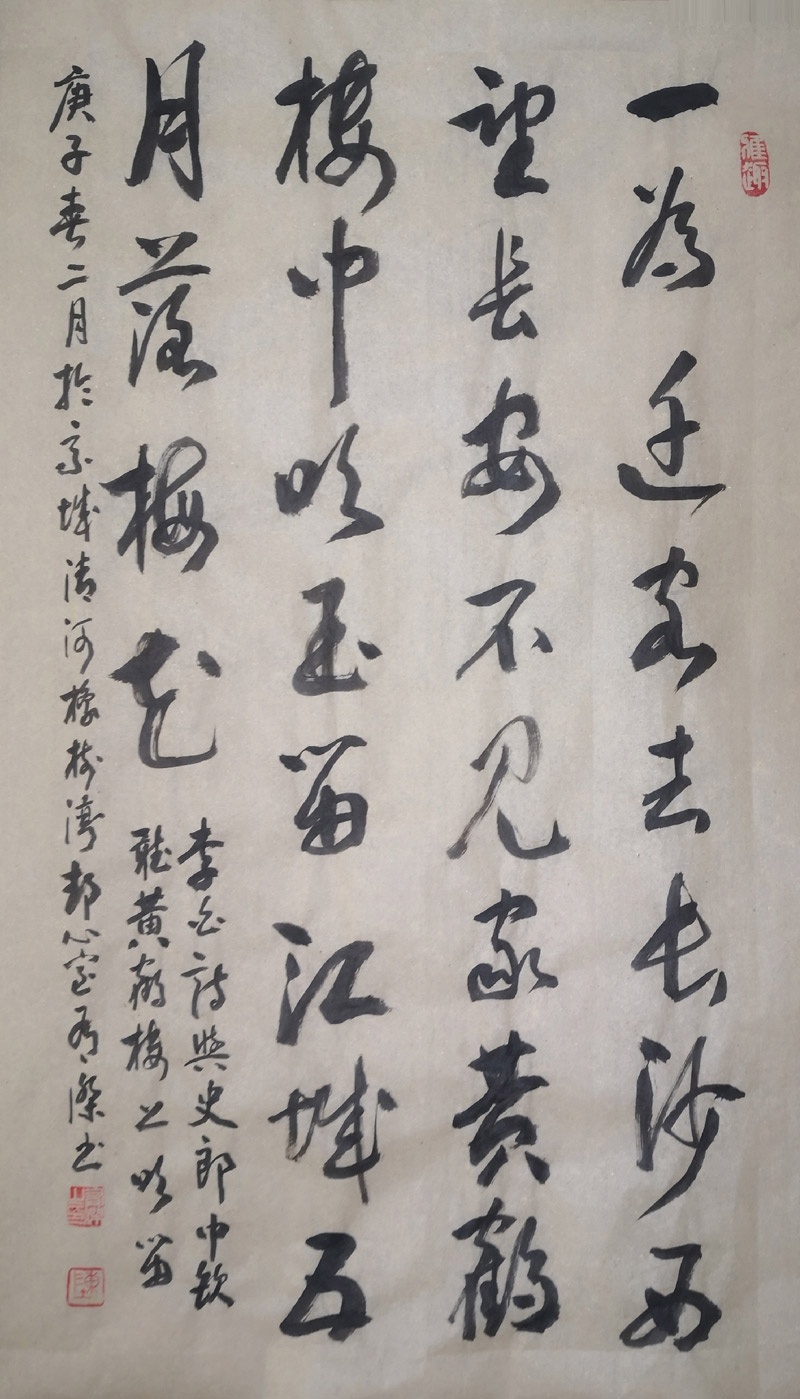 一为迁客去长沙西
望长安不见家黄鹤
楼中吹玉笛江城五
月落梅花
李白诗与史郎中钦
听黄鹤楼上吹笛
庚子春二月於京城清河橡树湾静心室有傑书
雅趣